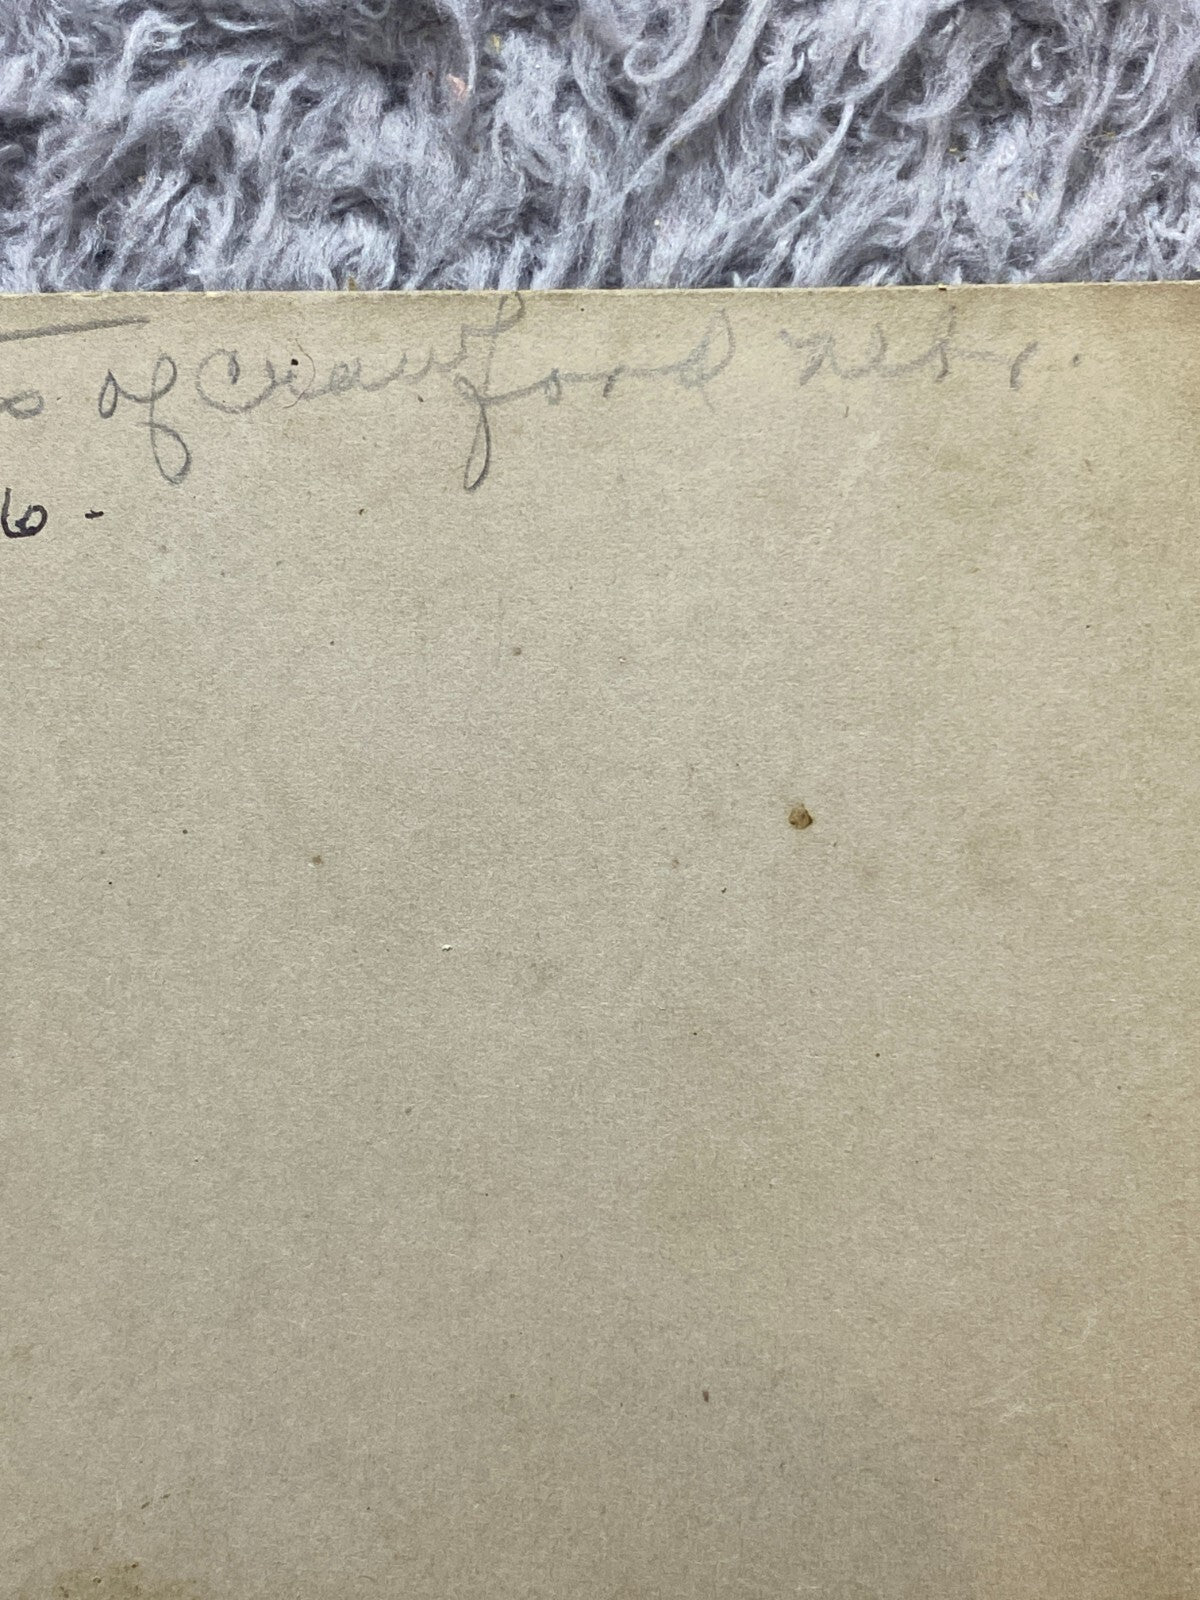 of Crawford Nebr.
6 -